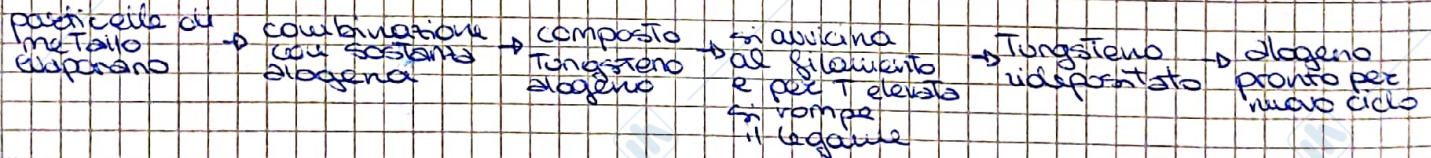 particelle di
metallo
evaporano
→ combinazione
con sostanza
alogena
→ composto
Tungsteno
alogeno
→ si avvicina
al filamento
e per T elevata
si rompe
il legame
→ Tungsteno
ridepositato
→ alogeno
pronto per
nuovo ciclo